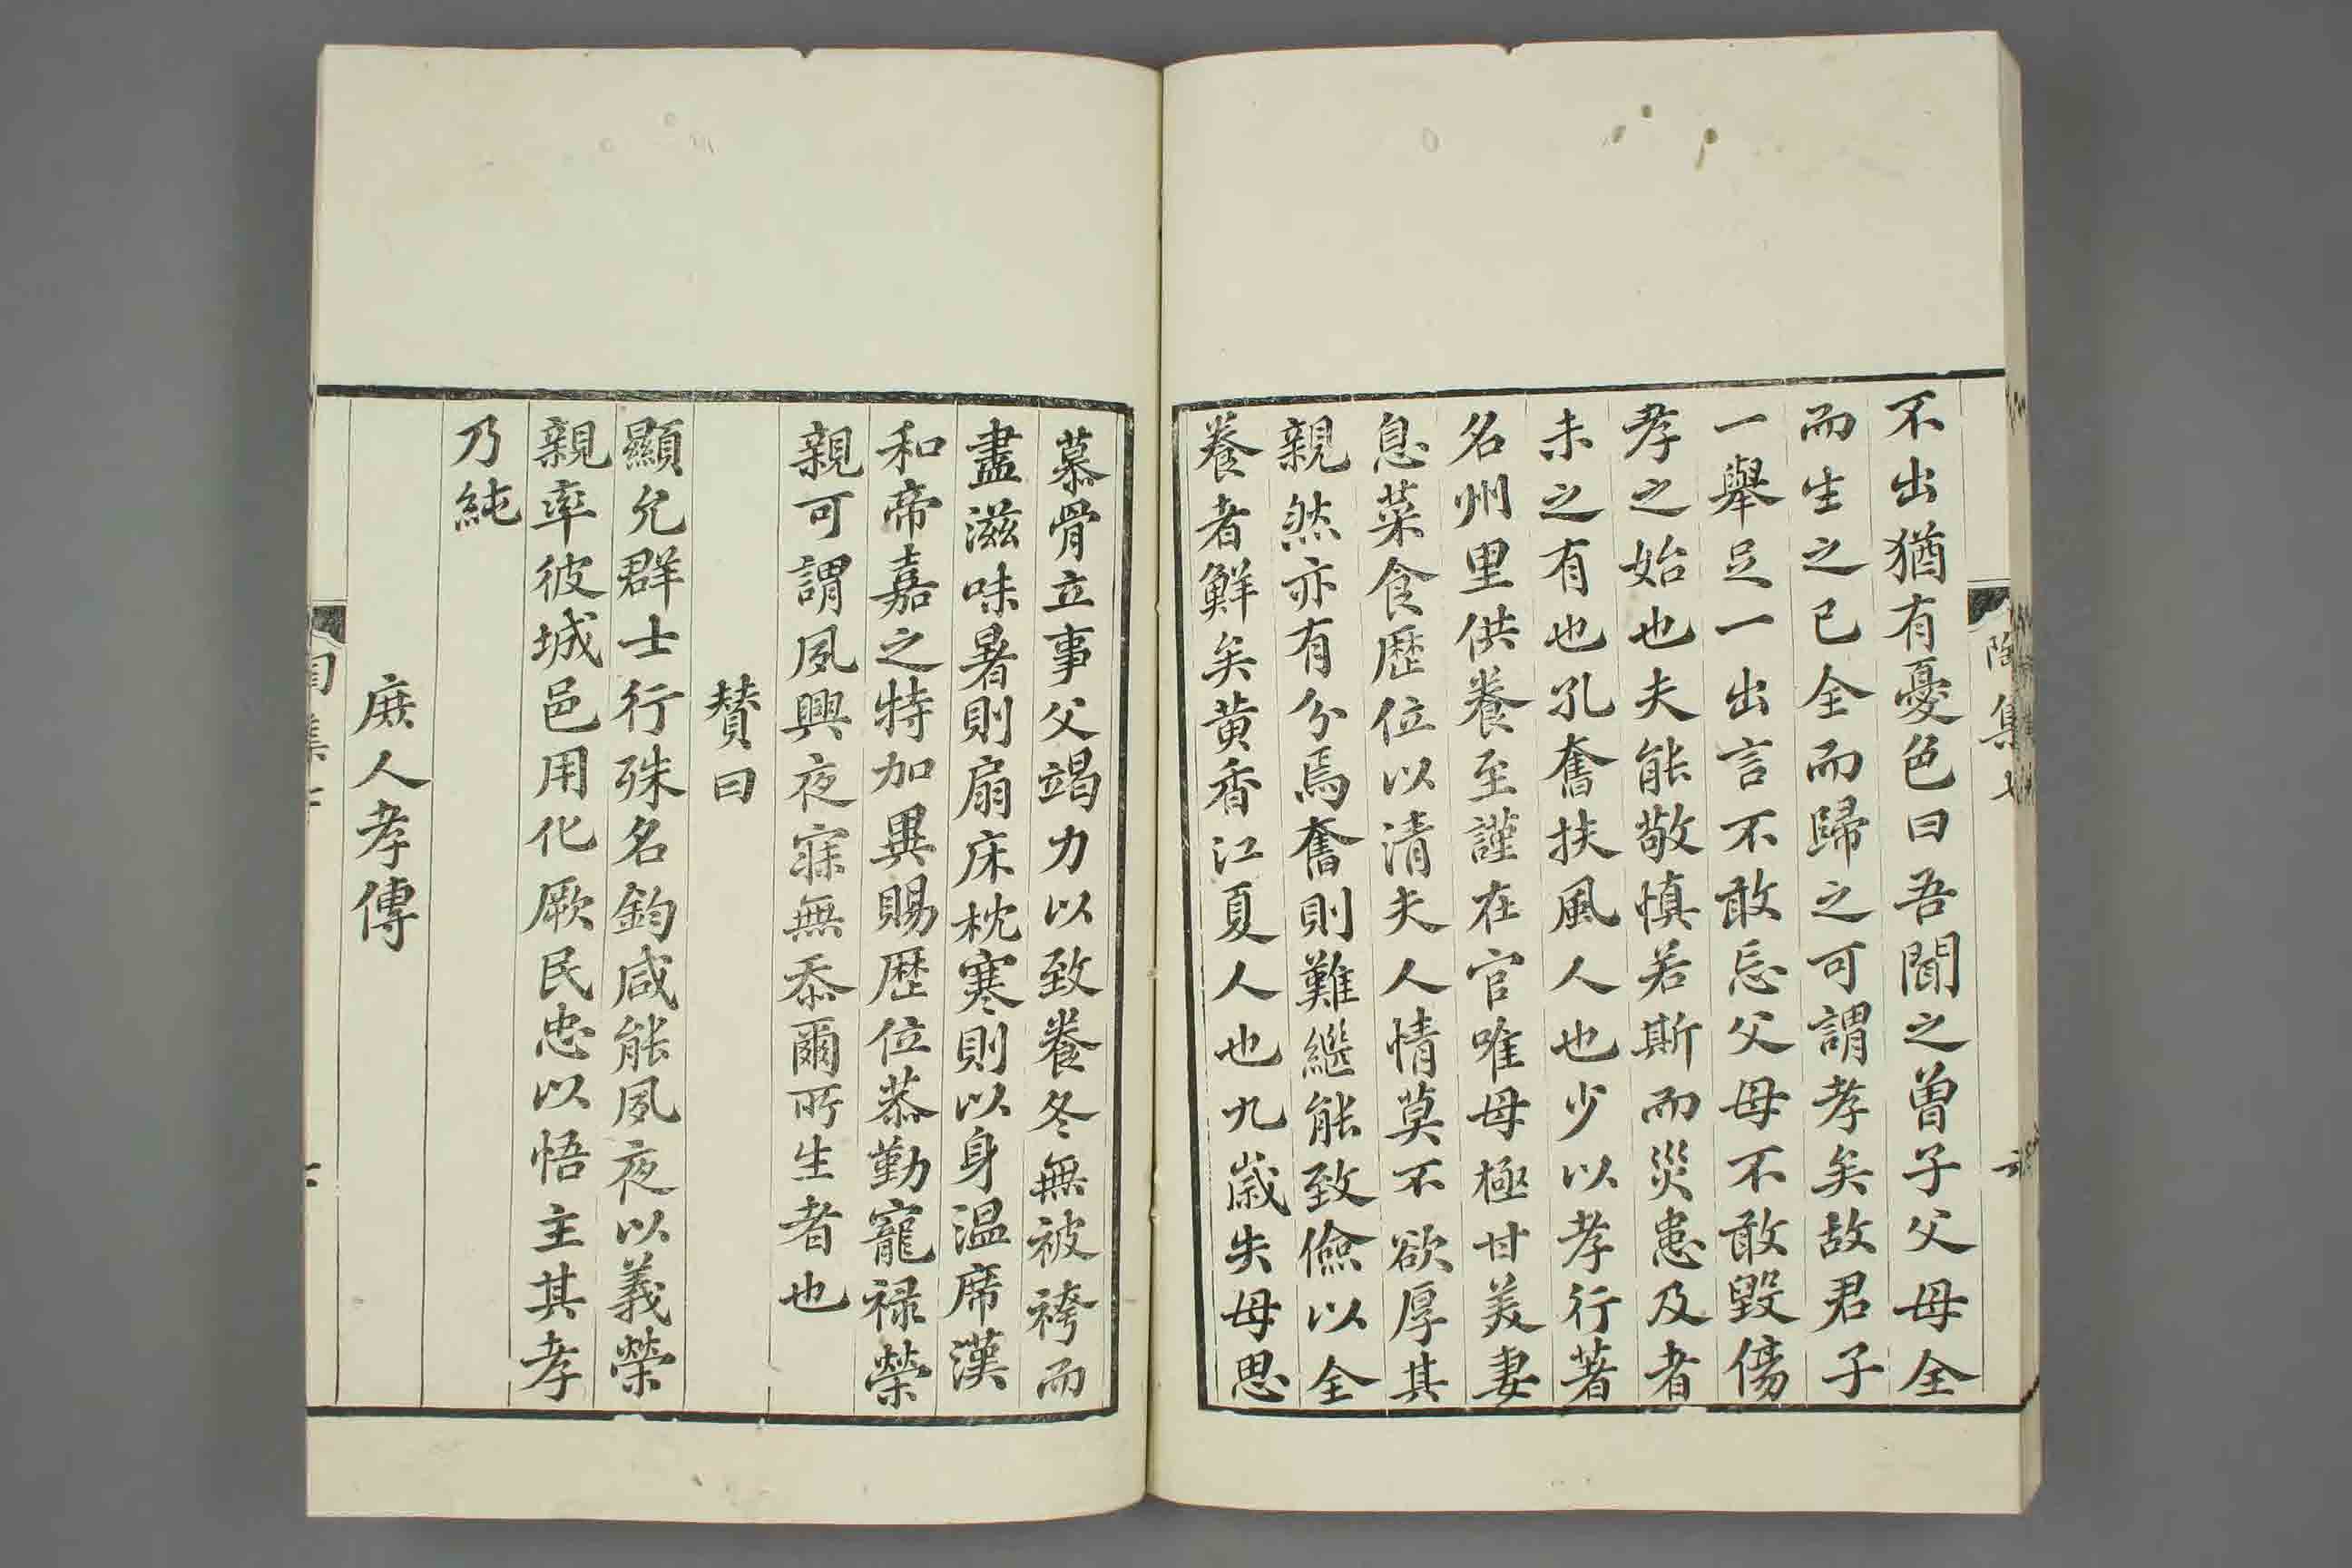 不出猶有憂色曰吾聞之曾子父母全
而生之已全而歸之可謂孝矣故君子
一舉足一出言不敢忘父母不敢毀傷
孝之始也夫能敬慎若斯而災患及者
未之有也孔奮扶風人也少以孝行著
名州里供養至謹在官唯母極甘美妻
息菜食歷位以清夫人情莫不欲厚其
親然亦有分焉奮則難繼能致儉以全
養者鮮矣黃香江夏人也九歲失母思
慕骨立事父竭力以致養冬無被袴而
盡滋味暑則扇床枕寒則以身溫席漢
和帝嘉之特加異賜歷位恭勤寵祿榮
親可謂夙興夜寐無忝爾所生者也
贊曰
顯允群士行殊名鈞咸能夙夜以義榮
親率彼城邑用化厥民忠以悟主其孝
乃純
庶人孝傳
陶集七